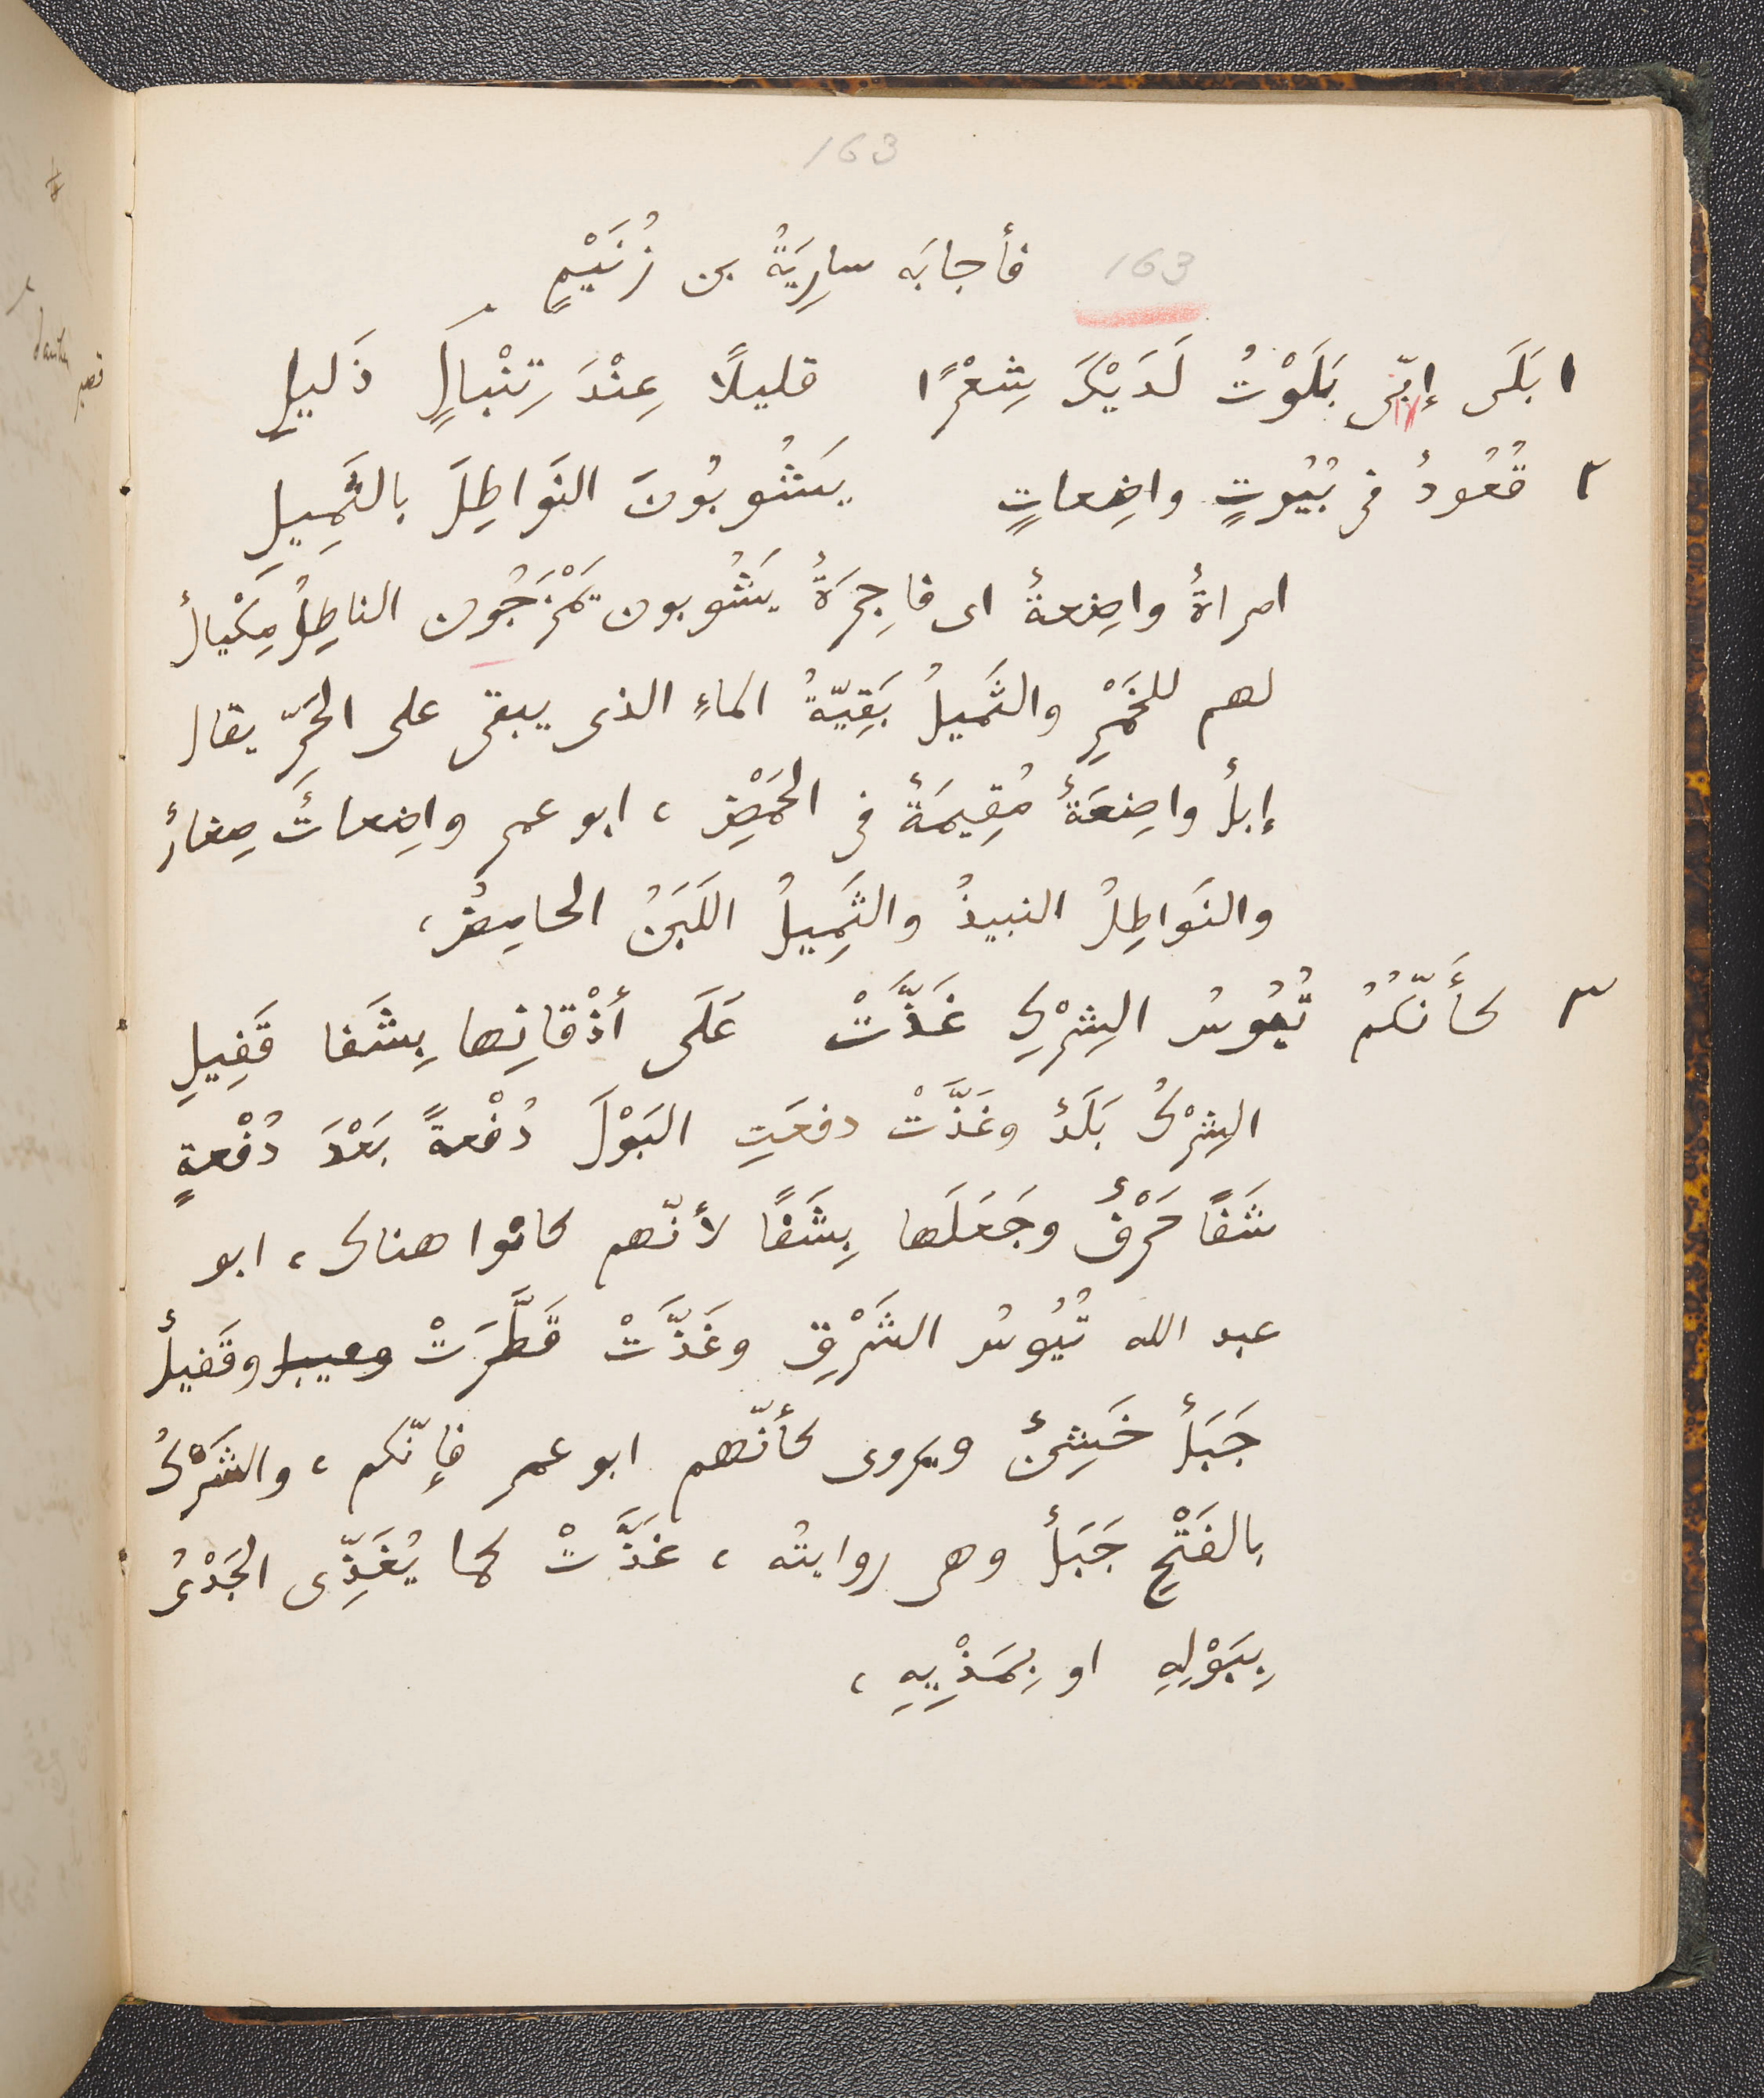 163
163 فأجابَه سارِيَةُ بن زُنَيْمٍ
١ بَلَى إنّى بَلَوْتُ لَدَيْكَ شِعْرًا قليلًا عِنْدَ تِنْبالٍ ذَليلِ
٢ قُعُودٌ فى بُيُوتٍ واضِعاتٍ يَشُوبُونَ النَواطِلَ بالثَمِيلِ
امراةٌ واضِعةٌ اى فاجِرَةٌ يَشُوبون يَمْزَجُون الناطِلُ مِكْيالٌ
لهم للخَمْرِ والثَميلُ بَقِيّةُ الماءِ الذى يبقى على الحَرِّ يقال
إبلٌ واضِعَةٌ مُقِيمَةٌ فى الحَمْضِ، ابو عمرٍ واضِعاتٌ صِغارٌ
والنَواطِلُ النبيذُ والثَمِيلُ اللَبَنُ الحامِضُ،
٣ كأَنّكُمُ تُيُوسُ الشِرْكِ غَذَّتْ عَلَى أذْقانِها بِشَفا قَفِيلِ
الشِرْكُ بَلَدٌ وغَذَّتْ دفعَتِ البَوْلَ دُفْعةً بَعْدَ دُفْعةٍ
شَفًا حَرْفٌ وجَعَلَها بِشَفًا لأنّهم كانوا هناك، ابو
عبد الله تُيُوسُ الشَرْقِ وغَذَّتْ قَطَّرَتْ وقَفيلٌ
جَبَلٌ خَشِنٌ ويروى كأنّهم ابو عمرٍ فإنّكم، والشَرْكُ
بالفَتْحِ جَبَلٌ وهى روايتُه، غَذَّتْ كما يُغَذِّى الجَدْىُ
بِبَوْلِهِ او بِمَذْيِهِ،